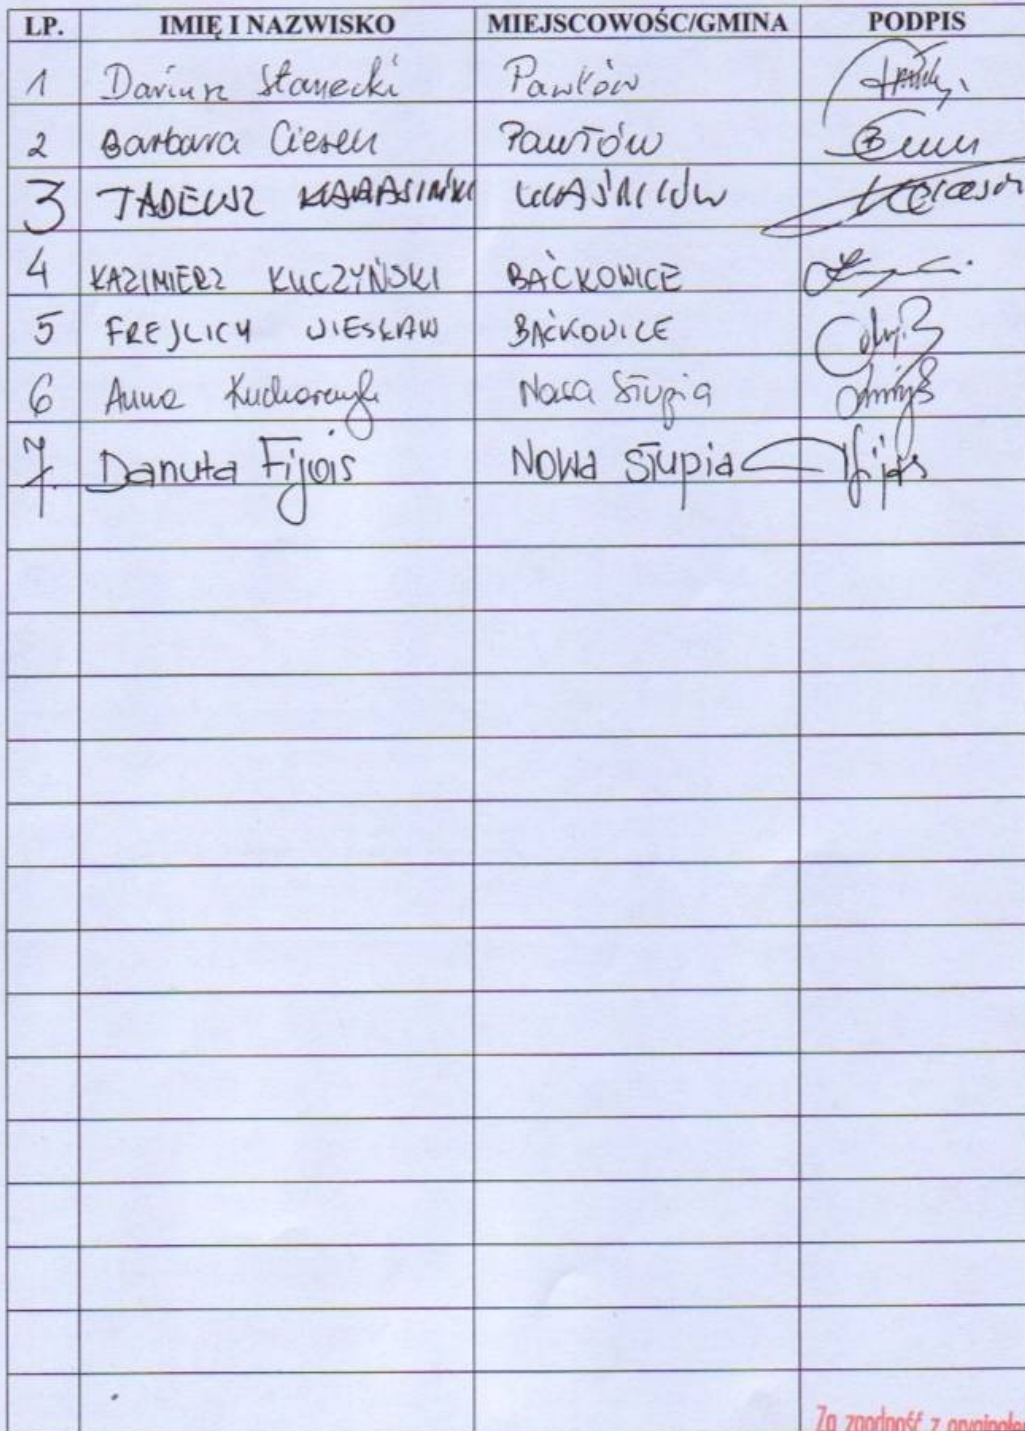 LP. IMIĘ I NAZWISKO MIEJSCOWOŚĆ/GMINA PODPIS
1 Dariusz Stanecki Pawłów
2 Barbara Ciesen Pawłów
3 TADEUSZ KARASIŃSKI WAŚNIÓW
4 KAZIMIERZ KUCZYŃSKI BAĆKOWICE
5 FREJLICH WIESŁAW BAĆKOWICE
6 Anna Nowa Słupia
7. Danuta Fijas Nowa Słupia Fijas
Za zgodność z oryginałem